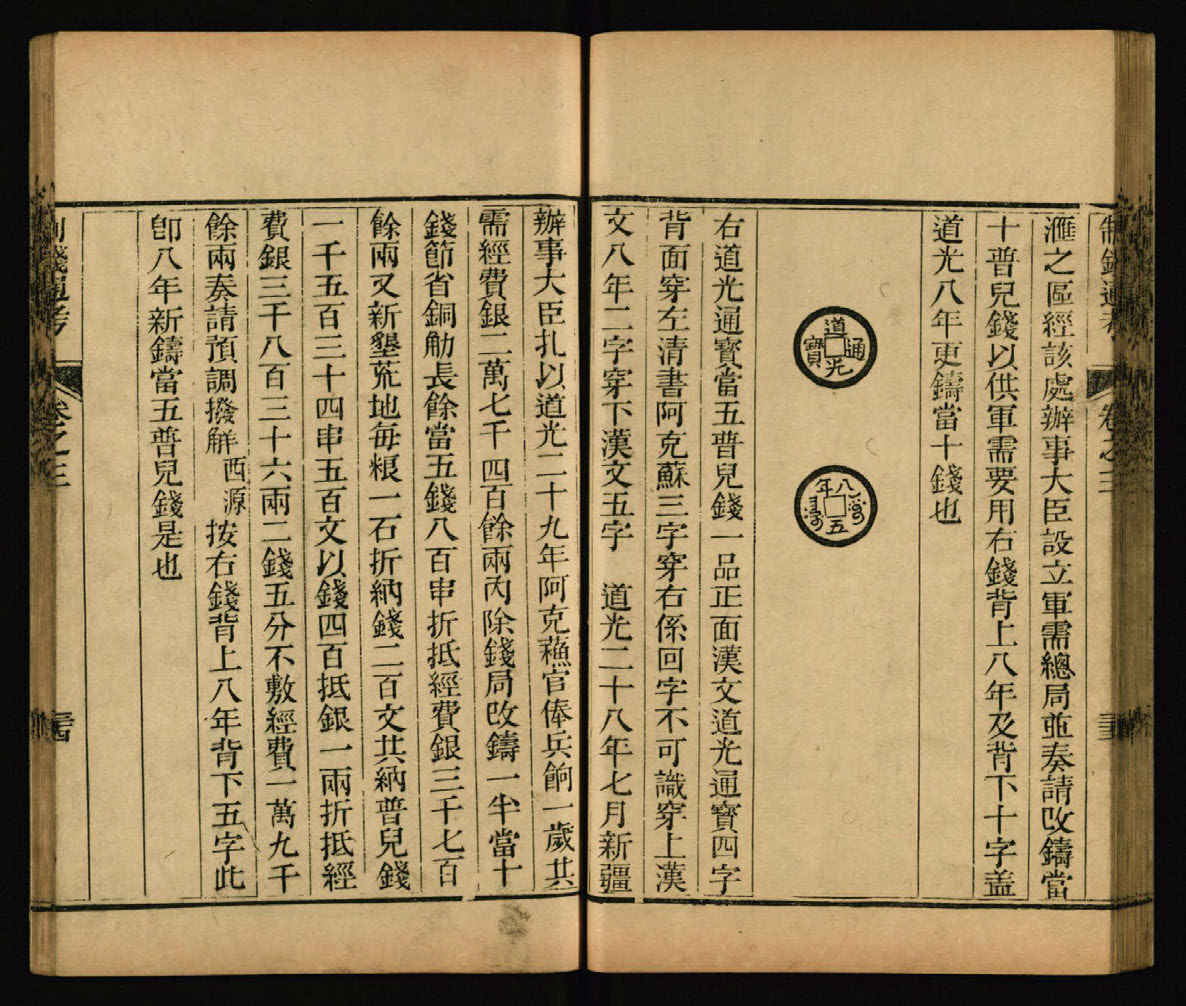 制錢通考 卷之三
滙之區經該處辦事大臣設立軍需總局並奏請改鑄當
十普兒錢以供軍需要用右錢背上八年及背下十字盖
道光八年更鑄當十錢也
道光通寶
八年五
右道光通寶當五普兒錢一品正面漢文道光通寶四字
背面穿左清書阿克蘇三字穿右係回字不可識穿上漢
文八年二字穿下漢文五字 道光二十八年七月新疆
辦事大臣扎以道光二十九年阿克蘓官俸兵餉一歲共
需經費銀二萬七千四百餘兩內除錢局改鑄一半當十
錢節省銅觔長餘當五錢八百串折抵經費銀三千七百
餘兩又新墾荒地每粮一石折納錢二百文共納普兒錢
一千五百三十四串五百文以錢四百抵銀一兩折抵經
費銀三千八百三十六兩二錢五分不敷經費一萬九千
餘兩奏請預調撥觧 西源 按右錢背上八年背下五字此
卽八年新鑄當五普兒錢是也
制錢通考 卷之三